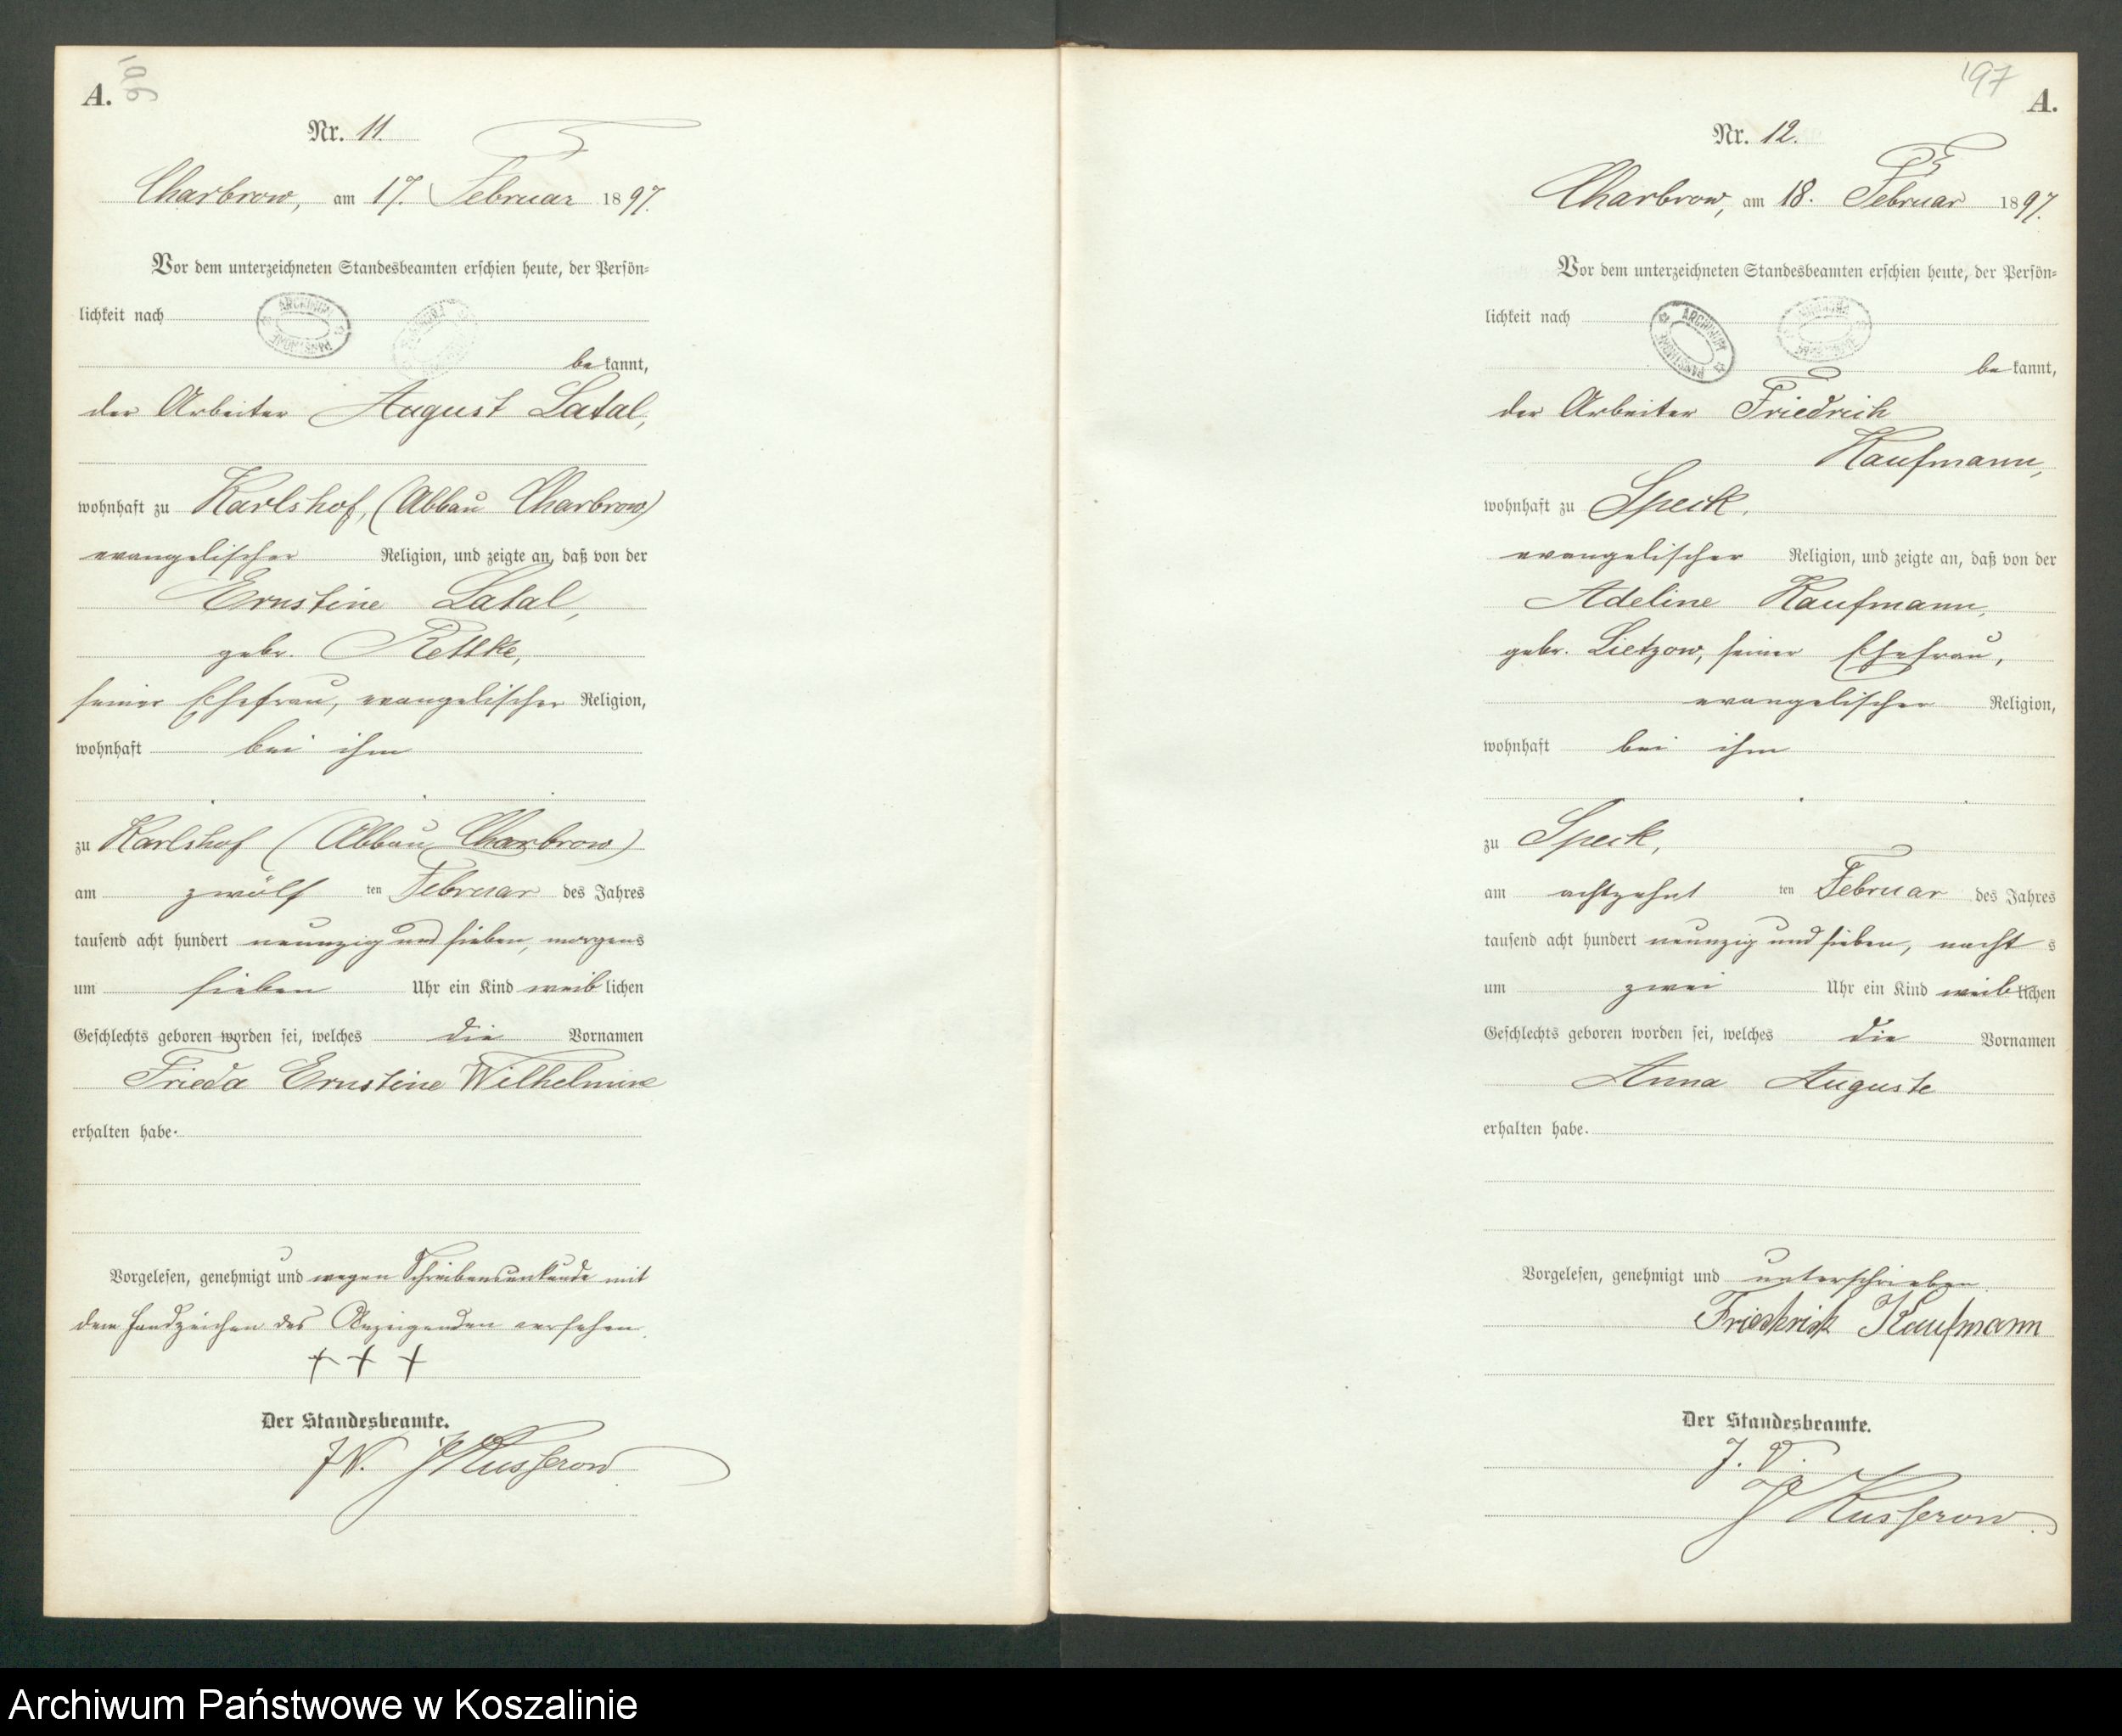 A.
Nr. 11.
Charbrow, am 17. Februar 1897.
Vor dem unterzeichneten Standesbeamten erschien heute, der Persön=
lichkeit nach
bekannt,
der Arbeiter August Latal,
wohnhaft zu Karlshof, (Abbau Charbrow)
evangelischer Religion, und zeigte an, daß von der
Ernstine Latal,
gebr. Rettke,
seiner Ehefrau, evangelischer Religion,
wohnhaft bei ihm
zu Karlshof (Abbau Charbrow)
am zwölf ten Februar des Jahres
tausend acht hundert neunzig und sieben, morgens
um sieben Uhr ein Kind weiblichen
Geschlechts geboren worden sei, welches die Vornamen
Frieda Ernstine Wilhelmine
erhalten habe.
Vorgelesen, genehmigt und wegen Schreibensunkunde mit
dem Handzeichen des Anzeigenden versehen.
+ + +
Der Standesbeamte.
J.V. Kusserow
'97
A.
Nr. 12.
Charbrow, am 18. Februar 1897.
Vor dem unterzeichneten Standesbeamten erschien heute, der Persön=
lichkeit nach
bekannt,
der Arbeiter Friedrich
Kaufmann,
wohnhaft zu Speck,
evangelischer Religion, und zeigte an, daß von der
Adeline Kaufmann,
gebr. Lietzow, seiner Ehefrau,
evangelischer Religion,
wohnhaft bei ihm
zu Speck,
am achtzehnt ten Februar des Jahres
tausend acht hundert neunzig und sieben, nachts
um zwei Uhr ein Kind weiblichen
Geschlechts geboren worden sei, welches die Vornamen
Anna Auguste
erhalten habe.
Vorgelesen, genehmigt und unterschrieben
Friedrich Kaufmann
Der Standesbeamte.
J. V.
Kusserow.
Archiwum Państwowe w Koszalinie